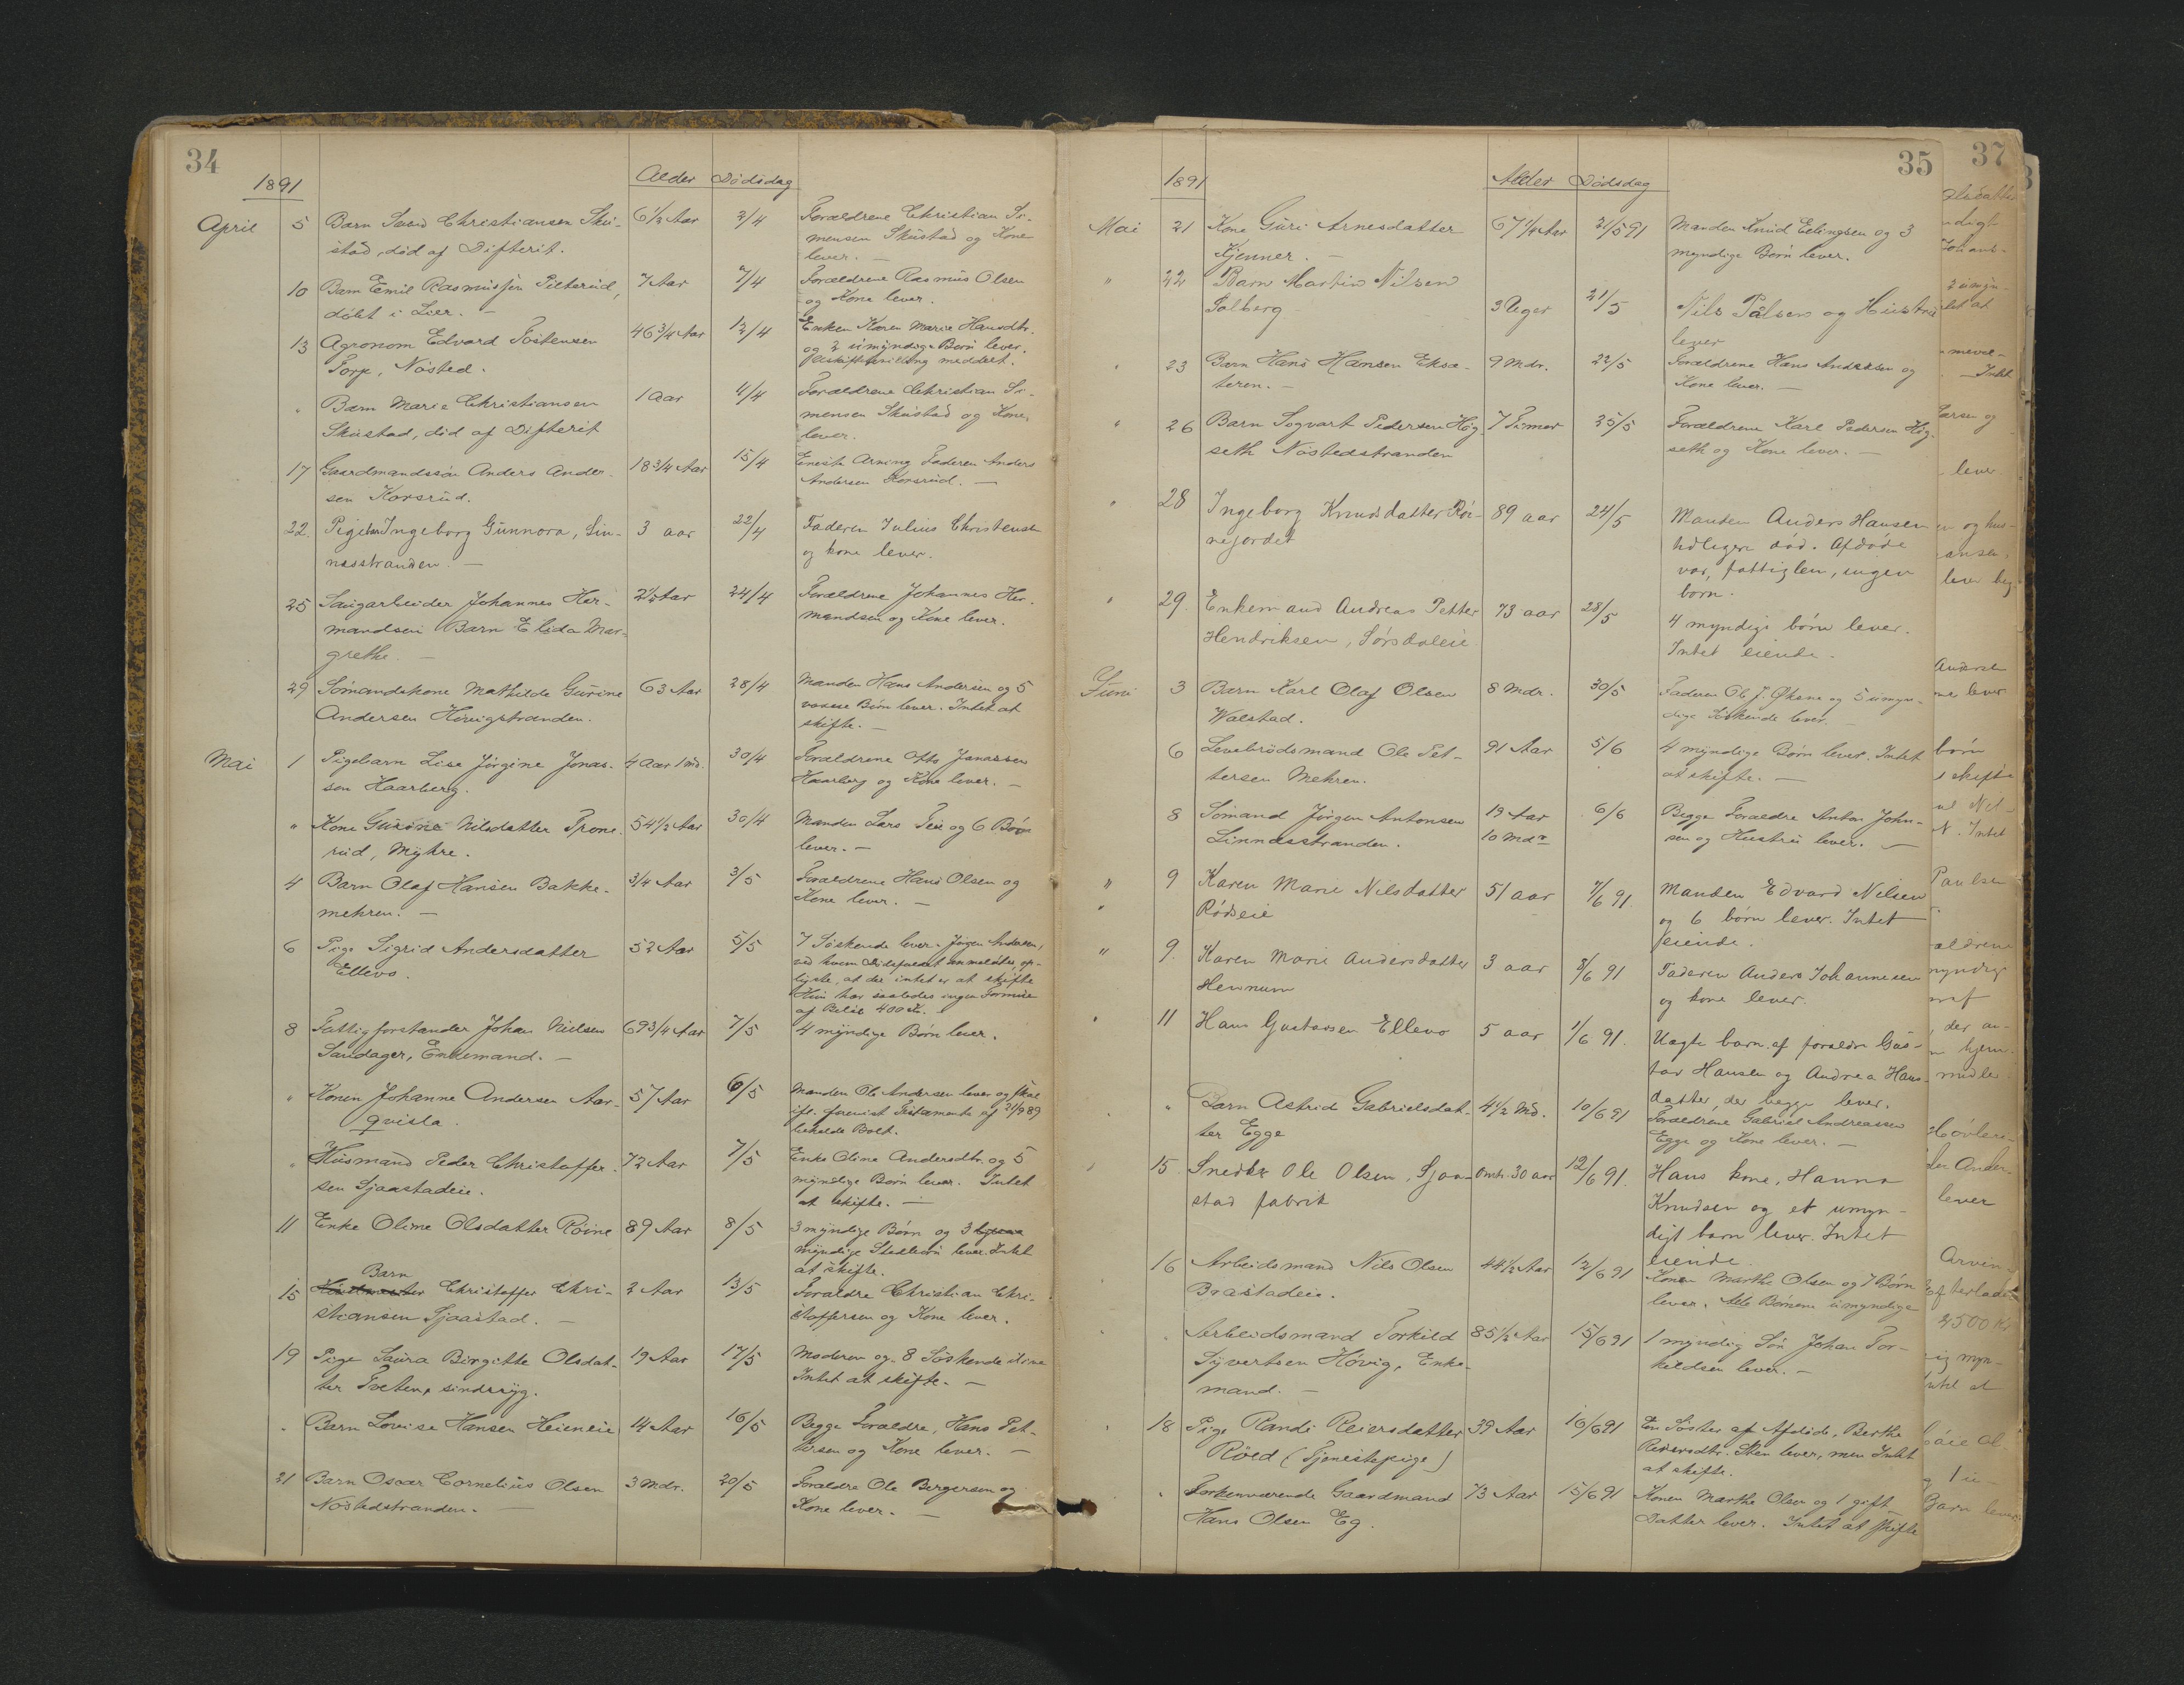 34
1891
Alder Dødsdag
April 5 Barn Christiansen Sku- 6 1/2 Aar 2/4 Forældrene Christian Si-
stad, død af Difterit. mensen Skustad og Kone
lever. —
10 Barn Emil Rasmussen Pilterud, 7 Aar 7/4 Forældrene Rasmus Olsen
døbt i Lier. — og Kone lever.
13 Agronom Edvard Tostensen 46 3/4 Aar 12/4 Enken Karen Marie Hansdtr.
Torp, Nøsted. og 2 umyndige Børn lever.
meddelt.
" Barn Marie Christiansen 1 Aar 4/4 Forældrene Christian Si-
Skustad, død af Difterit mensen Skustad og Kone
lever.
17 Gaardmandssøn Anders Ander- 18 3/4 Aar 15/4 Eneste Arving Faderen Anders
sen Korsrud. Andersen Korsrud. —
22. Pigebarn Ingeborg Gunnora, Lin- 3 aar 22/4 Faderen Julius Christensen
nesstranden. — og kone lever.
25 Saugarbeider Johannes Her- 2 1/2 Aar 24/4 Forældrene Johannes Her-
mandsen Barn Elida Mar- mandsen og Kone lever.
grethe. —
29 Sømandskone Mathilde Gurine 63 Aar 28/4 Manden Hans Andersen og 5
Andersen Høvigstranden. voxne Børn lever. Intet at
skifte. —
Mai 1 Pigebarn Lise Jørgine Jonas- 4 Aar 1 md. 30/4 Forældrene Otto Jonassen
sen Haarberg. Haarberg og Kone lever. —
" Kone Gurine Nilsdatter Trone- 54 1/2 Aar 30/4 Manden Lars Teie og 6 Børn
rud, Myhre. lever. —
4 Barn Olaf Hansen Bakke- 3/4 Aar 3/5 Forældrene Hans Olsen og
mehren. — Kone lever. —
6 Pige Sigrid Andersdatter 52 Aar 5/5 7 Søskende lever. Jørgen Andersen,
Ellevo. ved hvem Dødsfaldet anmeldtes, op-
lyste, at der intet er at skifte
Hun har saaledes ingen Formue
af Beløb 400 Kr.
8 Fattigforstander Johan Nielsen 69 3/4 Aar 7/5 4 myndige Børn lever.
Sandager, Enkemand. —
" Konen Johanne Andersen Aar- 57 Aar 6/5 Manden Ole Andersen lever og skal
qvisla. ifl. forevist Testamente af 21/9 89
beholde Boet.
" Husmand Peder Christoffer- 72 Aar 7/5 Enke Oline Andersdtr. og 5
sen Sjaastadeie. myndige Børn lever. Intet
at skifte. —
11 Enke Olime Olsdatter Røine 89 Aar 8/5 3 myndige Børn og 3
myndige Stedbørn lever. Intet
at skifte.
Barn
15 Christoffer Chri- 2 Aar 13/5 Forældre Christian Chri-
stiansen Sjaastad. — stoffersen og Kone lever.
19 Pige Laura Birgitte Olsdat- 19 Aar 17/5 Moderen og 8 Søskende ilive
ter Tveten, sindssyg. Intet at skifte. —
" Barn Lovise Hansen Heieneie 14 Aar 16/5 Begge Forældre, Hans Pet-
tersen og Kone lever. —
21 Barn Oscar Cornelius Olsen 3 Mdr. 20/5 Forældre Ole Bergersen og
Nøstedstranden. — Kone lever. —
35
1891
Alder Dødsdag
Mai 21 Kone Guri Arnesdatter 67 1/4 Aar 21/5 91 Manden Knud Erlingsen og 3
Kjenner. — myndige Børn lever.
" 22 Barn Martin Nilsen
Solberg 3 Uger 21/5 Nils Pålsen og Hustru
lever
" 23 Barn Hans Hansen Eksæ- 9 Mdr. 22/5 Forældrene Hans Andersen og
teren. — Kone lever. —
" 26 Barn Sogvart Pedersen Høg- 7 Timer 25/5 Forældrene Karl Pedersen Høg-
seth Nøstedstranden seth og Kone lever. —
" 28 Ingeborg Knudsdatter Røi- 89 aar 24/5 Manden Anders Hansen
nejordet tidligere død. Afdøde
var fattiglem, ingen
børn.
" 29. Enkemand Andreas Petter 73 aar 28/5 4 myndige børn lever.
Hendriksen, Sørsdaleie Intet eiende.
Juni 3 Barn Karl Olaf Olsen 8 Mdr. 30/5 Faderen Ole J. Øksne og 5 umyn-
Walstad. dige Søskende lever. —
6 Levebrødsmand Ole Pet- 91 Aar 5/6 4 myndige Børn lever. Intet
tersen Mehren. at skifte. —
8 Sømand Jørgen Antonsen 19 Aar 6/6 Begge Forældre Anton John-
Linnesstranden. 10 Mdr sen og Hustru lever. —
" 9 Karen Marie Nilsdatter 51 aar 7/6 91. Manden Edvard Nilsen
" Rødseie og 6 børn lever. Intet
eiende.
" 9. Karen Marie Andersdatter 3 aar 8/6 91 Faderen Anders Johannesen
Hennum og kone lever.
" 11 Hans Gustavsen Ellevo 5 aar 1/6 91. Uægte barn af forældre Gus-
tav Hansen og Andrea Hans-
datter, der begge lever.
" Barn Astrid Gabrielsdat- 4 1/2 Md. 10/6 91 Forældrene Gabriel Andreassen
ter Egge Egge og Kone lever. —
" 15 Snedker Ole Olsen, Sjaa- omtr. 30 aar 12/6 91. Hans kone, Hanna
stad fabrik Knudsen og et umyn-
digt barn lever. Intet
eiende.
16 Arbeidsmand Nils Olsen 44 1/2 Aar 12/6 91 Konen Marthe Olsen og 7 Børn
Brastadeie. lever. Alle Børnene umyndige
" Arbeidsmand Torkild 85 1/2 Aar 15/6 91 1 myndig Søn Johan Tor-
Syvertsen Høvig, Enke- kildsen lever. —
mand. —
" 18 Pige Randi Reiersdatter 39 Aar 16/6 91 En Søster af Afdøde, Berthe
Röed (Tjenestepige) Reiersdtr. Sten lever, men Intet
at skifte.
" Forhenværende Gaardmand 73 Aar 15/6 91 Konen Marthe Olsen og 1 gift
Hans Olsen Eg. Datter lever. Intet at skifte
37